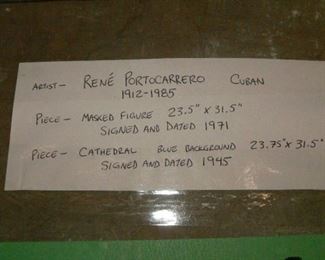 ARTIST - RENÉ PORTOCARRERO CUBAN
1912-1985
PIECE - MASKED FIGURE 23.5" X 31.5"
SIGNED AND DATED 1971
PIECE - CATHEDRAL BLUE BACKGROUND 23.75" X 31.5"
SIGNED AND DATED 1945